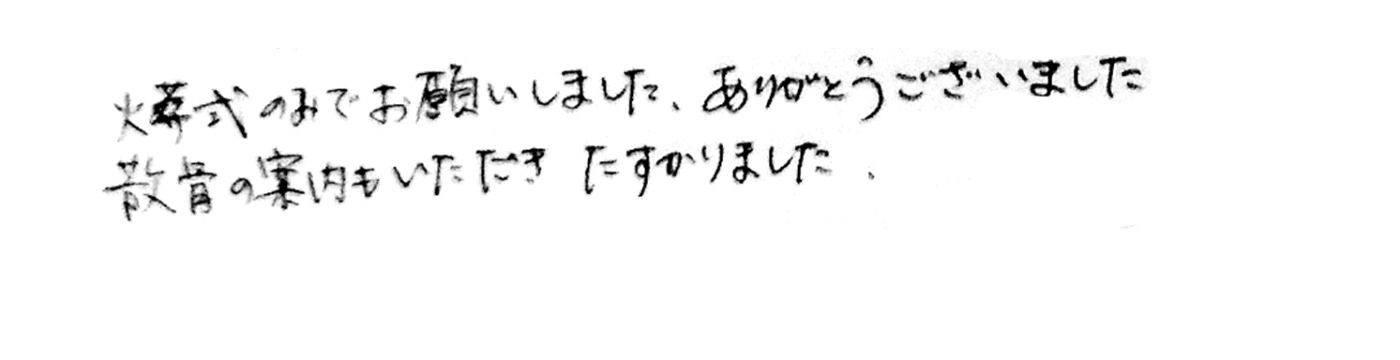 火葬式のみでお願いしました、ありがとうございました
散骨の案内もいただき たすかりました、